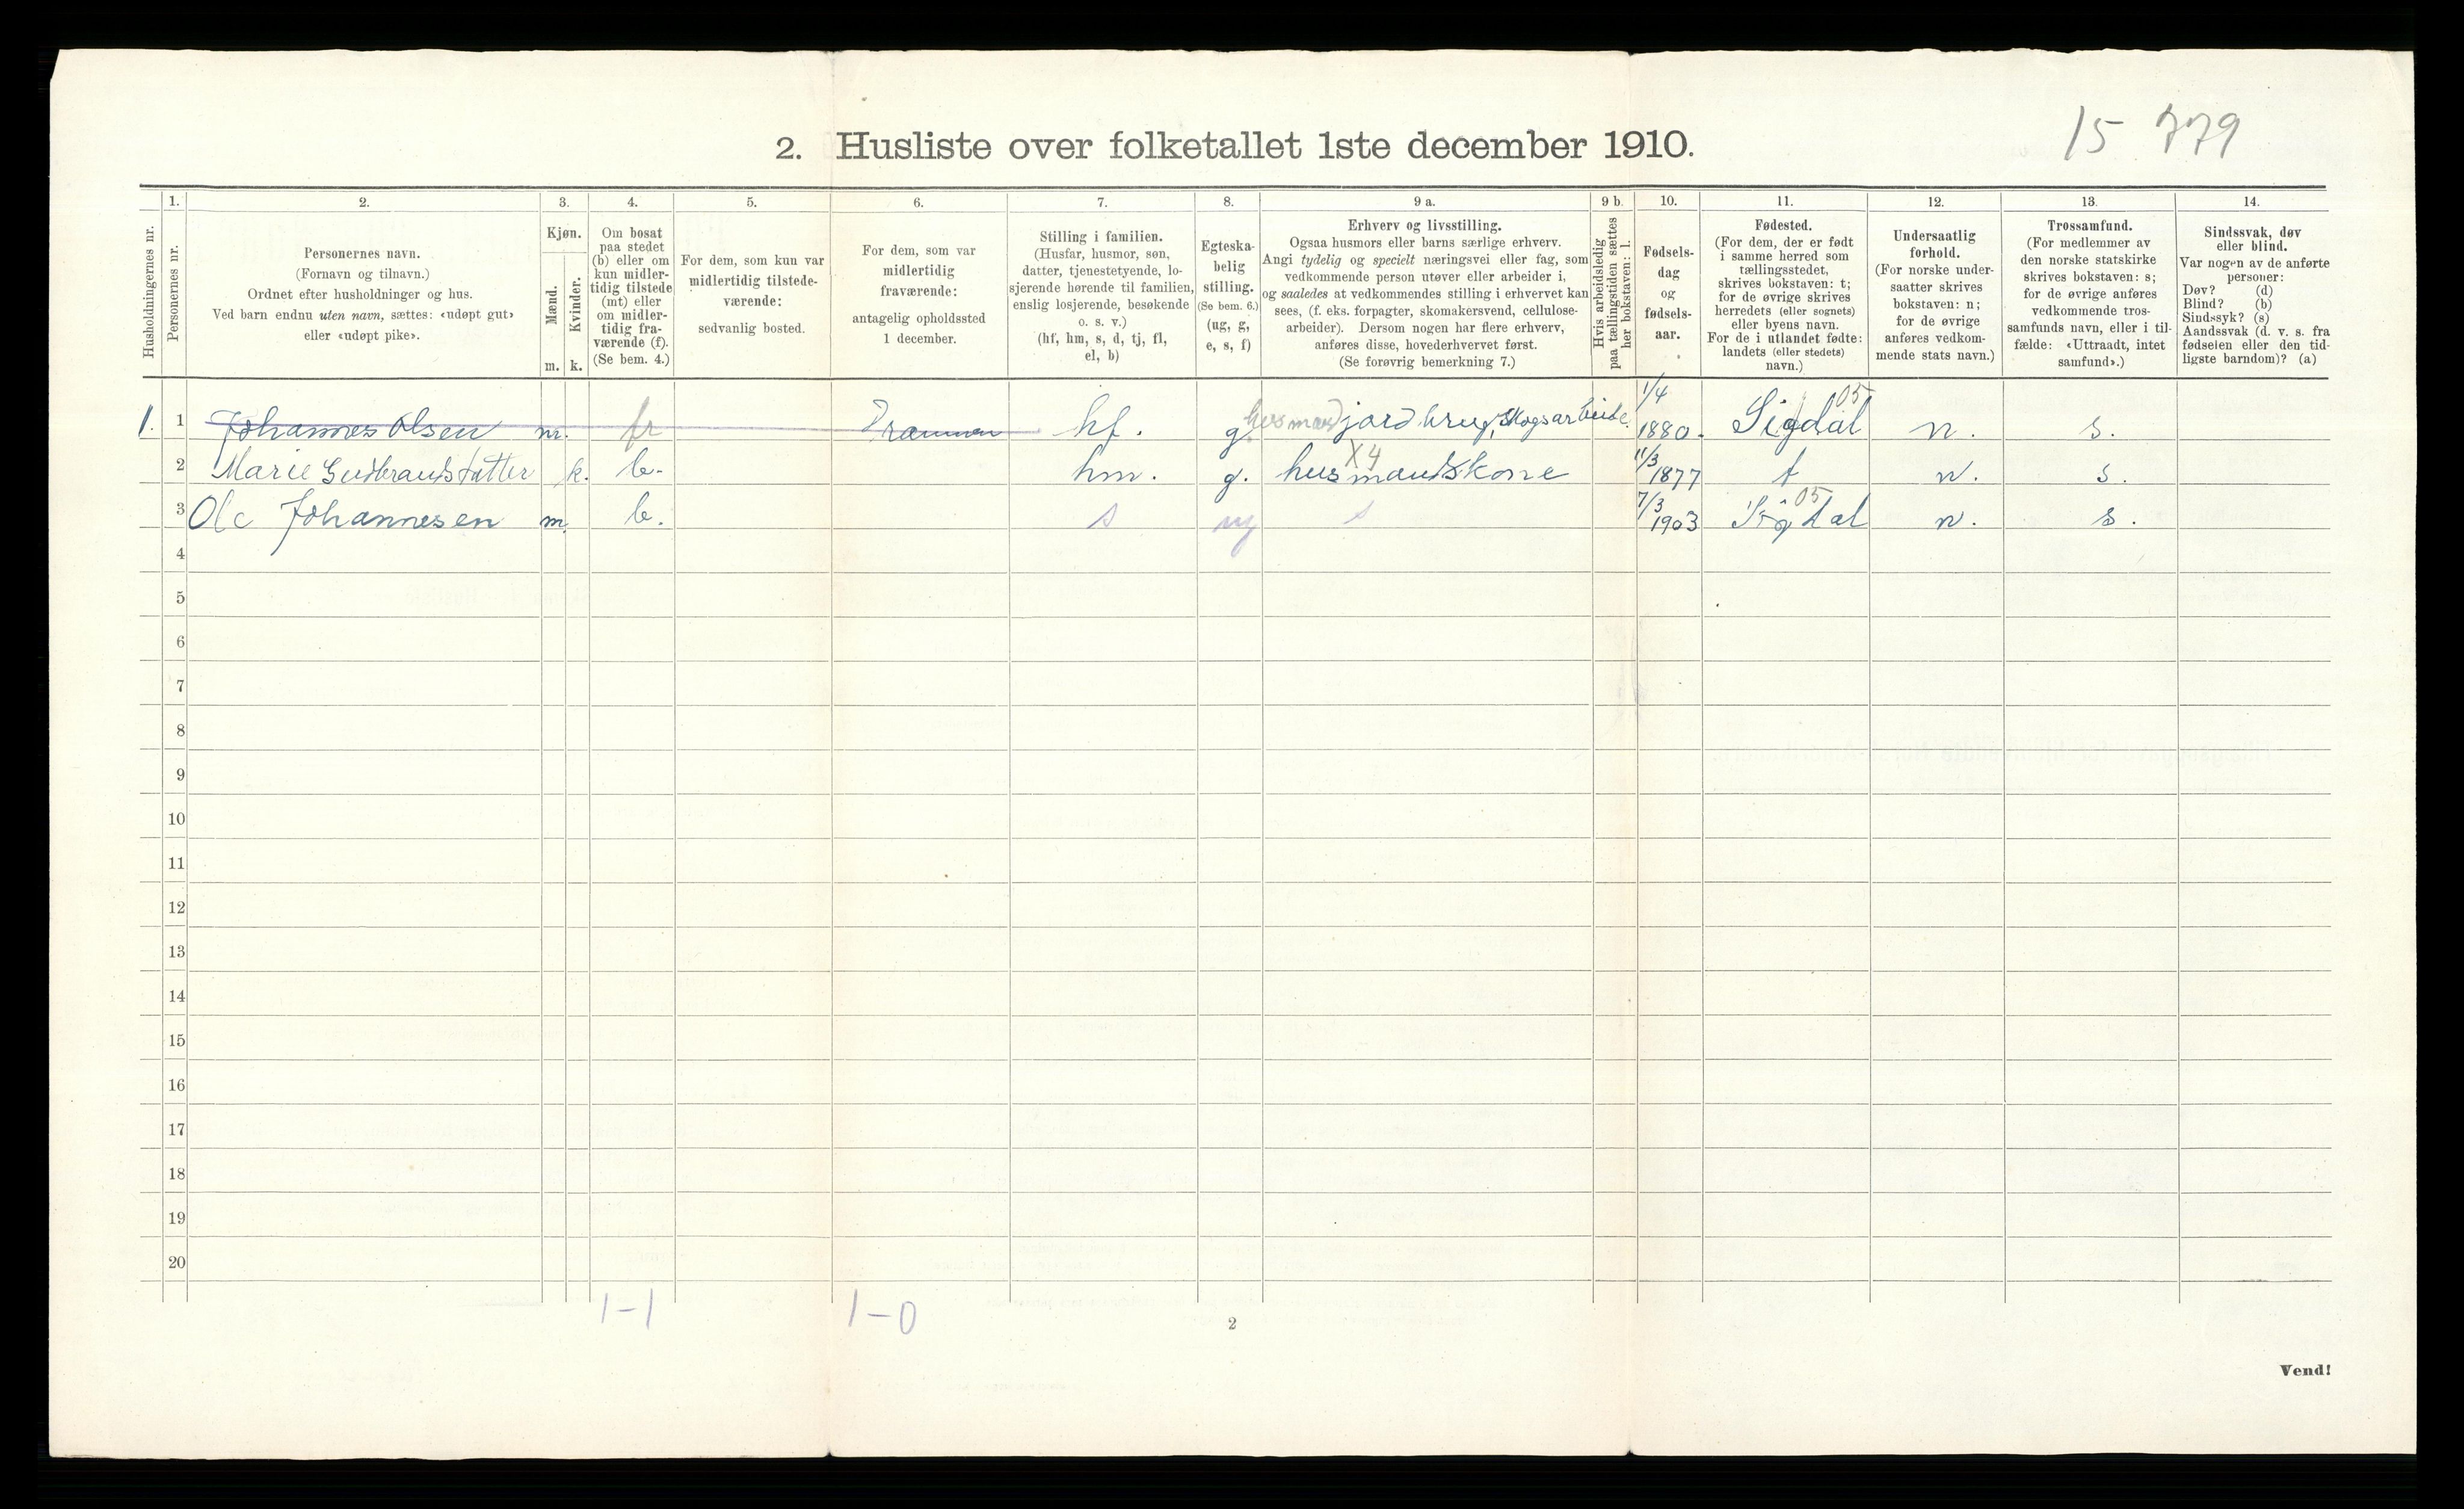 15 779
2. Husliste over folketallet 1ste december 1910.
Husholdningernes nr.
1.
Personernes nr.
2.
Personernes navn.
(Fornavn og tilnavn.)
Ordnet efter husholdninger og hus.
Ved barn endnu uten navn, sættes: «udøpt gut»
eller «udøpt pike».
3.
Kjøn.
Mænd.
Kvinder.
m. k.
4.
Om bosat
paa stedet
(b) eller om
kun midler-
tidig tilstede
(mt) eller
om midler-
tidig fra-
værende (f).
(Se bem. 4.)
5.
For dem, som kun var
midlertidig tilstede-
værende:
sedvanlig bosted.
6.
For dem, som var
midlertidig
fraværende:
antagelig opholdssted
1 december.
7.
Stilling i familien.
(Husfar, husmor, søn,
datter, tjenestetyende, lo-
sjerende hørende til familien,
enslig losjerende, besøkende
o. s. v.)
(hf, hm, s, d, tj, fl,
el, b)
8.
Egteska-
belig
stilling.
(Se bem. 6.)
(ug, g,
e, s, f)
9 a.
Erhverv og livsstilling.
Ogsaa husmors eller barns særlige erhverv.
Angi tydelig og specielt næringsvei eller fag, som
vedkommende person utøver eller arbeider i,
og saaledes at vedkommendes stilling i erhvervet kan
sees, (f. eks. forpagter, skomakersvend, cellulose-
arbeider). Dersom nogen har flere erhverv,
anføres disse, hovederhvervet først.
(Se forøvrig bemerkning 7.)
9 b.
Hvis arbeidsledig
paa tællingstiden sættes
her bokstaven: l.
10.
Fødsels-
dag
og
fødsels-
aar.
11.
Fødested.
(For dem, der er født
i samme herred som
tællingsstedet,
skrives bokstaven: t;
for de øvrige skrives
herredets (eller sognets)
eller byens navn.
For de i utlandet fødte:
landets (eller stedets)
navn.)
12.
Undersaatlig
forhold.
(For norske under-
saatter skrives
bokstaven: n;
for de øvrige
anføres vedkom-
mende stats navn.)
13.
Trossamfund.
(For medlemmer av
den norske statskirke
skrives bokstaven: s;
for de øvrige anføres
vedkommende tros-
samfunds navn, eller i til-
fælde: «Uttraadt, intet
samfund».)
14.
Sindssvak, døv
eller blind.
Var nogen av de anførte
personer:
Døv? (d)
Blind? (b)
Sindssyk? (s)
Aandssvak (d. v. s. fra
fødselen eller den tid-
ligste barndom)? (a)
1. 1 Johannes Olsen m. fr Drammen hf. g. husmand jordbrug, Skogsarbeide. 1/4 1880. Sigdal 05 n. s.
2 Marie Gudbrandsdatter k. b. hm. g. husmandskone X4 11/3 1877 t n. s.
3 Ole Johannesen m. b. s ug s 7/3 1903 Sigdal 05 n. s.
4
5
6
7
8
9
10
11
12
13
14
15
16
17
18
19
20
1-1 1-0
2
Vend!